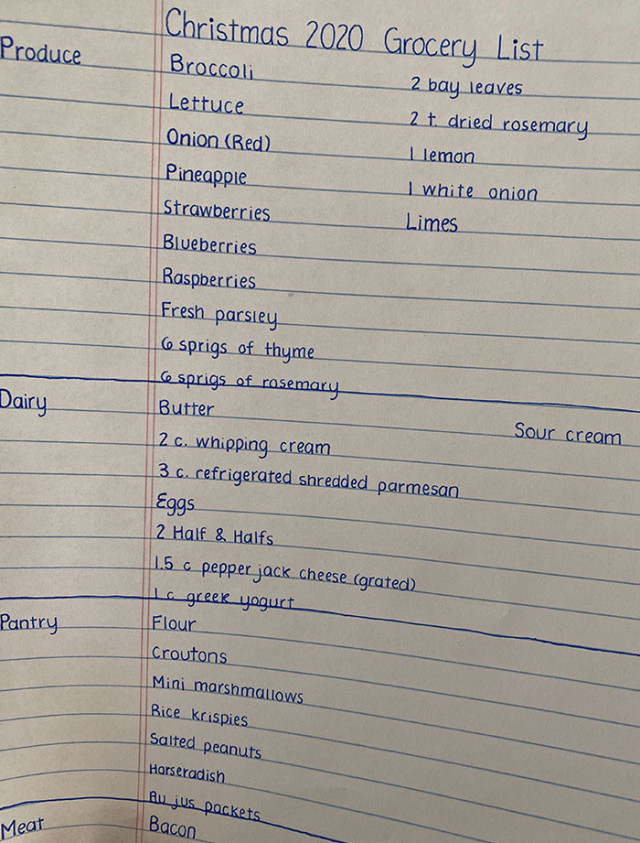 Christmas 2020 Grocery List
Produce
Broccoli
Lettuce
Onion (Red)
Pineapple
Strawberries
Blueberries
Raspberries
Fresh parsley
6 sprigs of thyme
6 sprigs of rosemary
2 bay leaves
2 t. dried rosemary
1 lemon
1 white onion
Limes
Dairy
Butter
2 c. whipping cream
3 c. refrigerated shredded parmesan
Eggs
2 Half & Halfs
1.5 c pepper jack cheese (grated)
1 c. greek yogurt
Sour cream
Pantry
Flour
Croutons
Mini marshmallows
Rice krispies
Salted peanuts
Horseradish
Au jus packets
Meat
Bacon